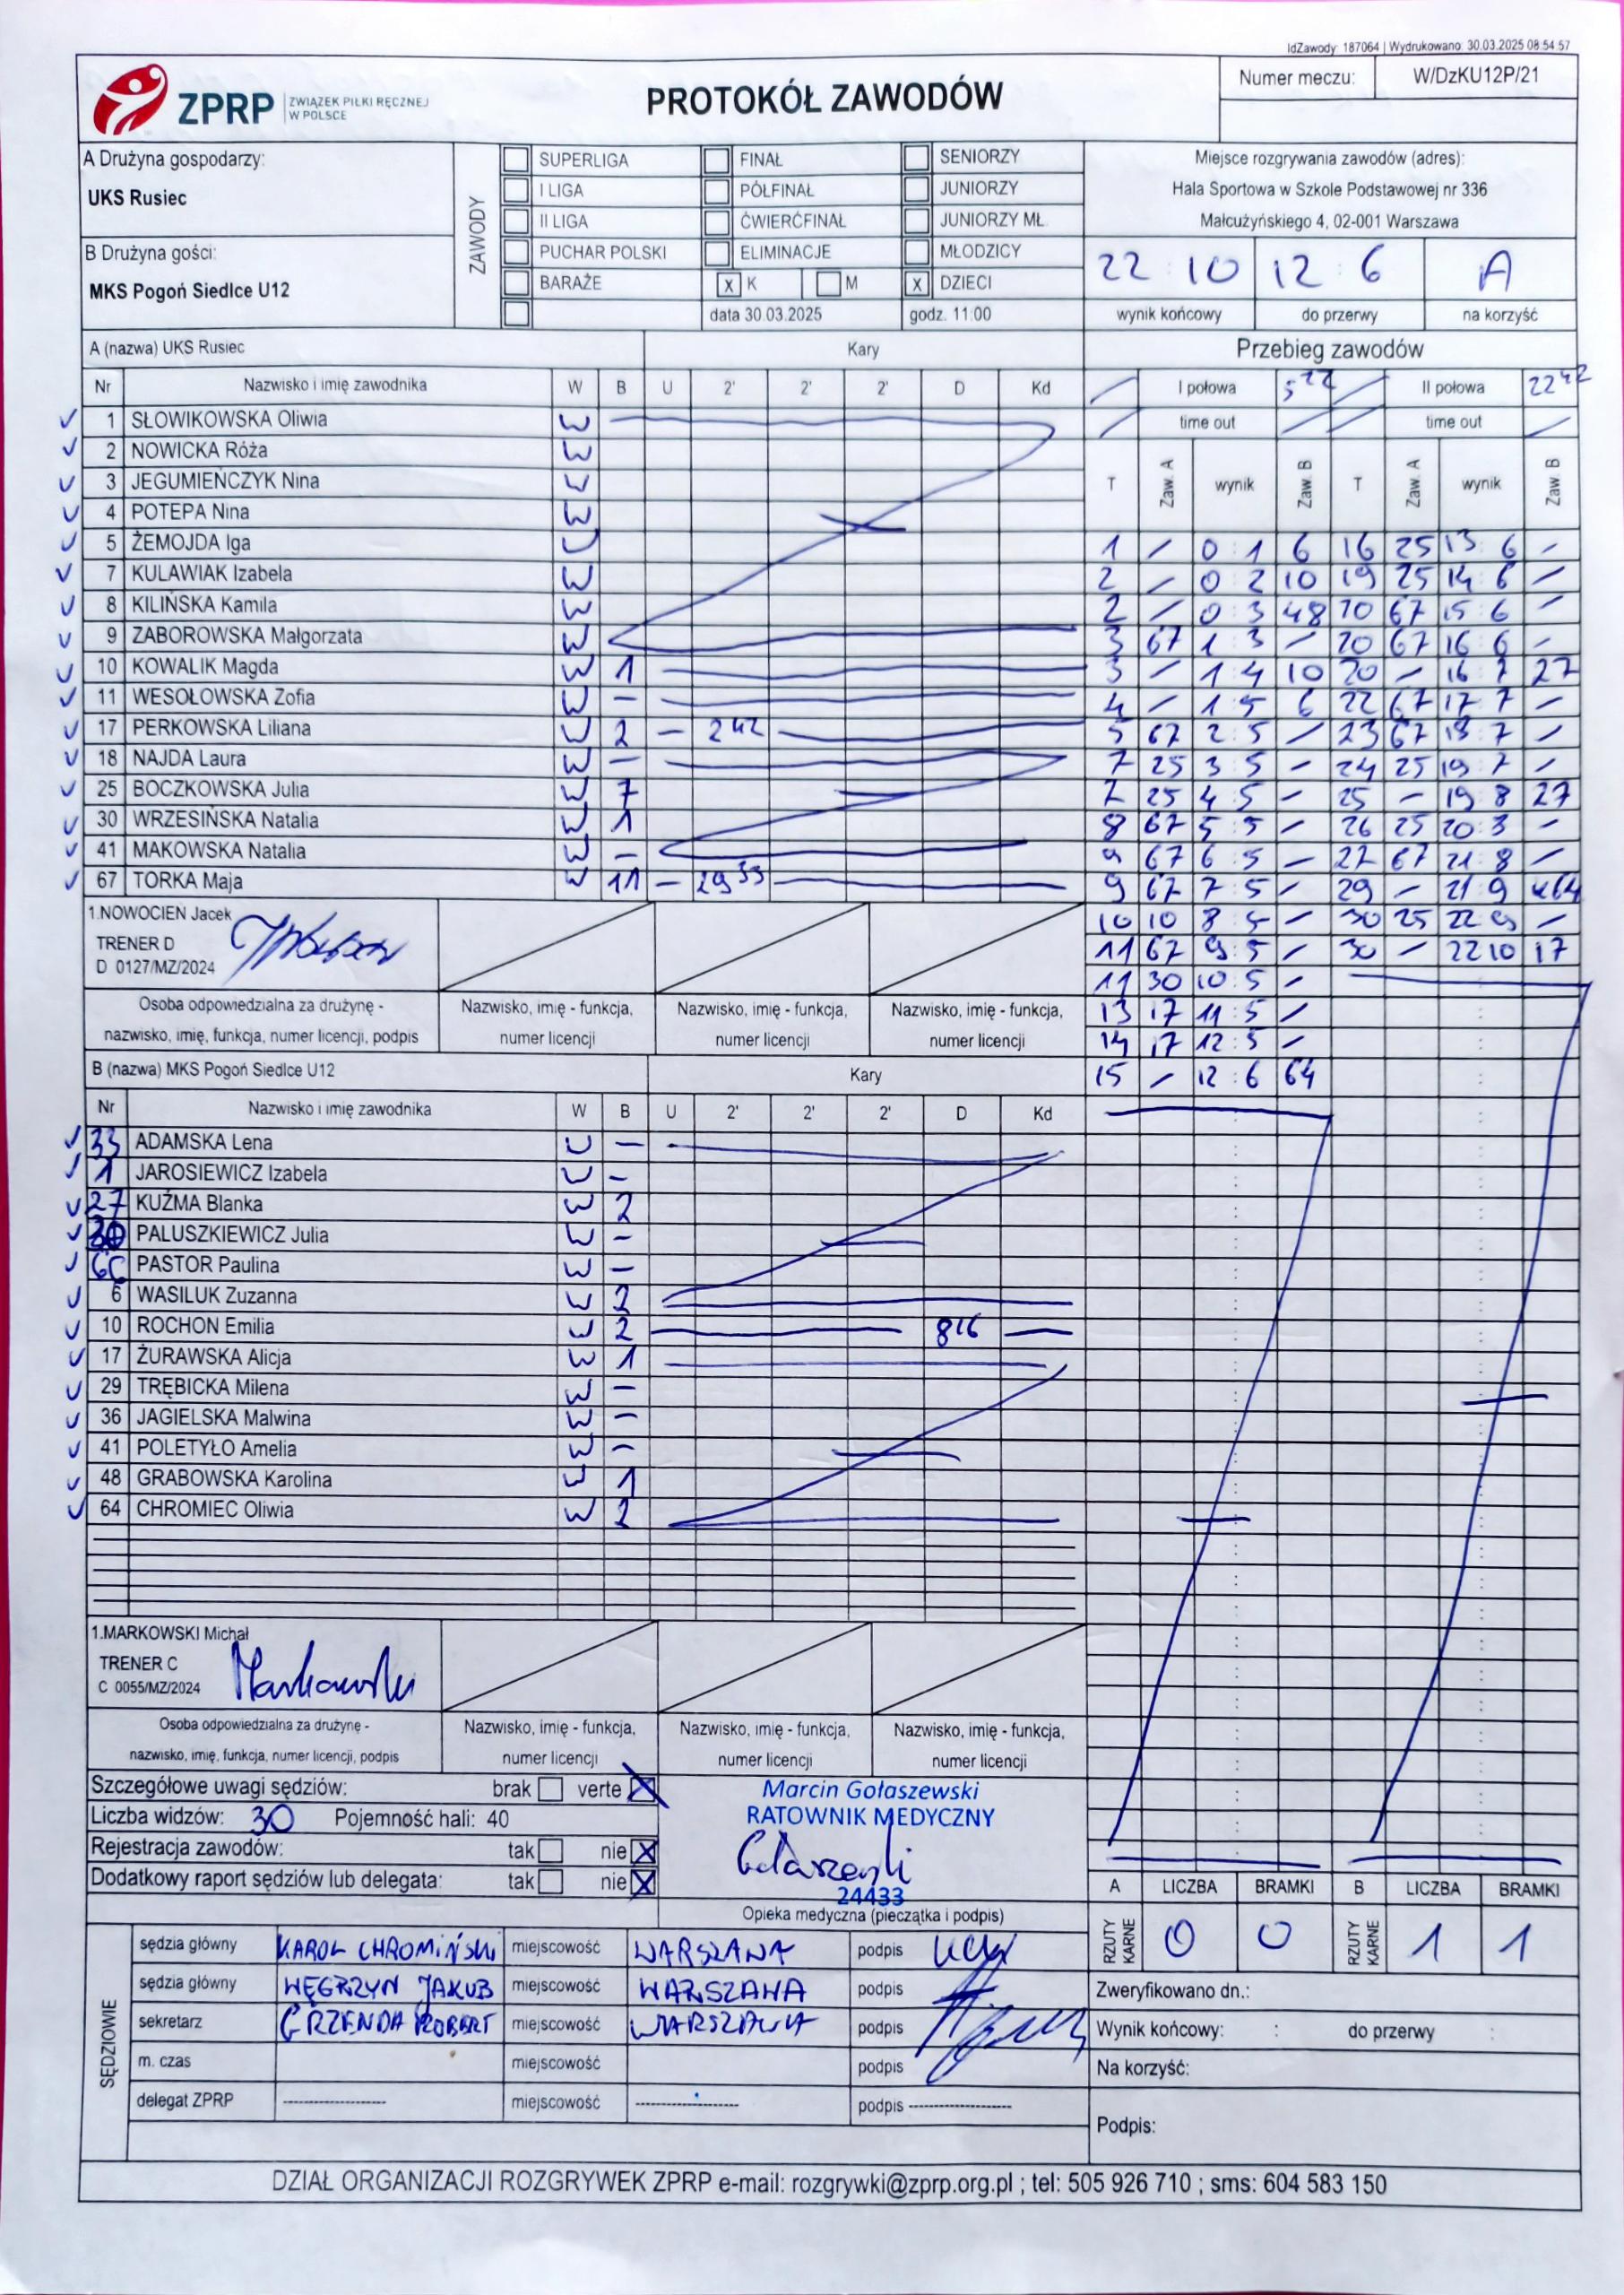 IdZawody: 187064 | Wydrukowano: 30.03.2025 08:54:57
ZPRP ZWIĄZEK PIŁKI RĘCZNEJ W POLSCE
PROTOKÓŁ ZAWODÓW
Numer meczu: W/DzKU12P/21
A Drużyna gospodarzy:
UKS Rusiec
B Drużyna gości:
MKS Pogoń Siedlce U12
ZAWODY
SUPERLIGA FINAŁ SENIORZY
I LIGA PÓŁFINAŁ JUNIORZY
II LIGA ĆWIERĆFINAŁ JUNIORZY MŁ.
PUCHAR POLSKI ELIMINACJE MŁODZICY
BARAŻE x K M x DZIECI
data 30.03.2025 godz. 11:00
Miejsce rozgrywania zawodów (adres):
Hala Sportowa w Szkole Podstawowej nr 336
Małcużyńskiego 4, 02-001 Warszawa
22 : 10 12 : 6 A
wynik końcowy do przerwy na korzyść
A (nazwa) UKS Rusiec Kary
Nr Nazwisko i imię zawodnika W B U 2' 2' 2' D Kd
1 SŁOWIKOWSKA Oliwia W
2 NOWICKA Róża W
3 JEGUMIEŃCZYK Nina W
4 POTEPA Nina W
5 ŻEMOJDA Iga W
7 KULAWIAK Izabela W
8 KILIŃSKA Kamila W
9 ZABOROWSKA Małgorzata W
10 KOWALIK Magda W 1
11 WESOŁOWSKA Zofia W -
17 PERKOWSKA Liliana W 2 - 242
18 NAJDA Laura W -
25 BOCZKOWSKA Julia W 7
30 WRZESIŃSKA Natalia W 1
41 MAKOWSKA Natalia W -
67 TORKA Maja W 11 - 2933
1.NOWOCIEN Jacek
TRENER D
D 0127/MZ/2024
Osoba odpowiedzialna za drużynę -
nazwisko, imię, funkcja, numer licencji, podpis
Nazwisko, imię - funkcja,
numer licencji
Nazwisko, imię - funkcja,
numer licencji
Nazwisko, imię - funkcja,
numer licencji
Przebieg zawodów
I połowa 522 II połowa 2242
time out time out
T Zaw. A wynik Zaw. B T Zaw. A wynik Zaw. B
1 / 0 : 1 6 16 25 13 : 6 -
2 / 0 : 2 10 19 25 14 : 6 /
2 / 0 : 3 48 20 67 15 : 6 -
3 67 1 : 3 - 20 67 16 : 6 -
3 / 1 : 4 10 20 - 16 : 7 27
4 / 1 : 5 6 22 67 17 : 7 -
5 67 2 : 5 / 23 67 18 : 7 /
7 25 3 : 5 - 24 25 19 : 7 /
7 25 4 : 5 - 25 - 19 : 8 27
8 67 5 : 5 - 26 25 20 : 8 -
9 67 6 : 5 - 27 67 21 : 8 /
9 67 7 : 5 - 29 - 21 : 9 k64
10 10 8 : 5 - 30 25 22 : 9 -
11 67 9 : 5 - 30 - 22 : 10 17
11 30 10 : 5 -
13 17 11 : 5 /
14 17 12 : 5 -
15 / 12 : 6 64
B (nazwa) MKS Pogoń Siedlce U12 Kary
Nr Nazwisko i imię zawodnika W B U 2' 2' 2' D Kd
33 ADAMSKA Lena W -
1 JAROSIEWICZ Izabela W -
27 KUŹMA Blanka W 2
PALUSZKIEWICZ Julia W -
66 PASTOR Paulina W -
6 WASILUK Zuzanna W 2
10 ROCHON Emilia W 2 816
17 ŻURAWSKA Alicja W 1
29 TRĘBICKA Milena W -
36 JAGIELSKA Malwina W -
41 POLETYŁO Amelia W -
48 GRABOWSKA Karolina W 1
64 CHROMIEC Oliwia W 2
1.MARKOWSKI Michał
TRENER C
C 0055/MZ/2024
Markowski
Osoba odpowiedzialna za drużynę -
nazwisko, imię, funkcja, numer licencji, podpis
Nazwisko, imię - funkcja,
numer licencji
Nazwisko, imię - funkcja,
numer licencji
Nazwisko, imię - funkcja,
numer licencji
Szczegółowe uwagi sędziów: brak verte X
Liczba widzów: 30 Pojemność hali: 40
Rejestracja zawodów: tak nie X
Dodatkowy raport sędziów lub delegata: tak nie X
Marcin Gołaszewski
RATOWNIK MEDYCZNY
24433
Opieka medyczna (pieczątka i podpis)
A LICZBA BRAMKI B LICZBA BRAMKI
RZUTY KARNE 0 0 RZUTY KARNE 1 1
SĘDZIOWIE
sędzia główny KAROL CHROMIŃSKI miejscowość WARSZAWA podpis
sędzia główny WĘGRZYN JAKUB miejscowość WARSZAWA podpis
sekretarz GRZENDA ROBERT miejscowość WARSZAWA podpis
m. czas miejscowość podpis
delegat ZPRP -------------------- miejscowość -------------------- podpis --------------------
Zweryfikowano dn.:
Wynik końcowy: : do przerwy :
Na korzyść:
Podpis:
DZIAŁ ORGANIZACJI ROZGRYWEK ZPRP e-mail: rozgrywki@zprp.org.pl ; tel: 505 926 710 ; sms: 604 583 150